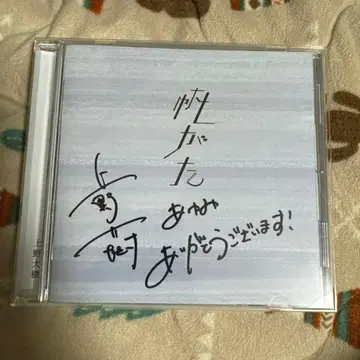 帆がた
上野
大樹
ありがとうございます!
上野大樹